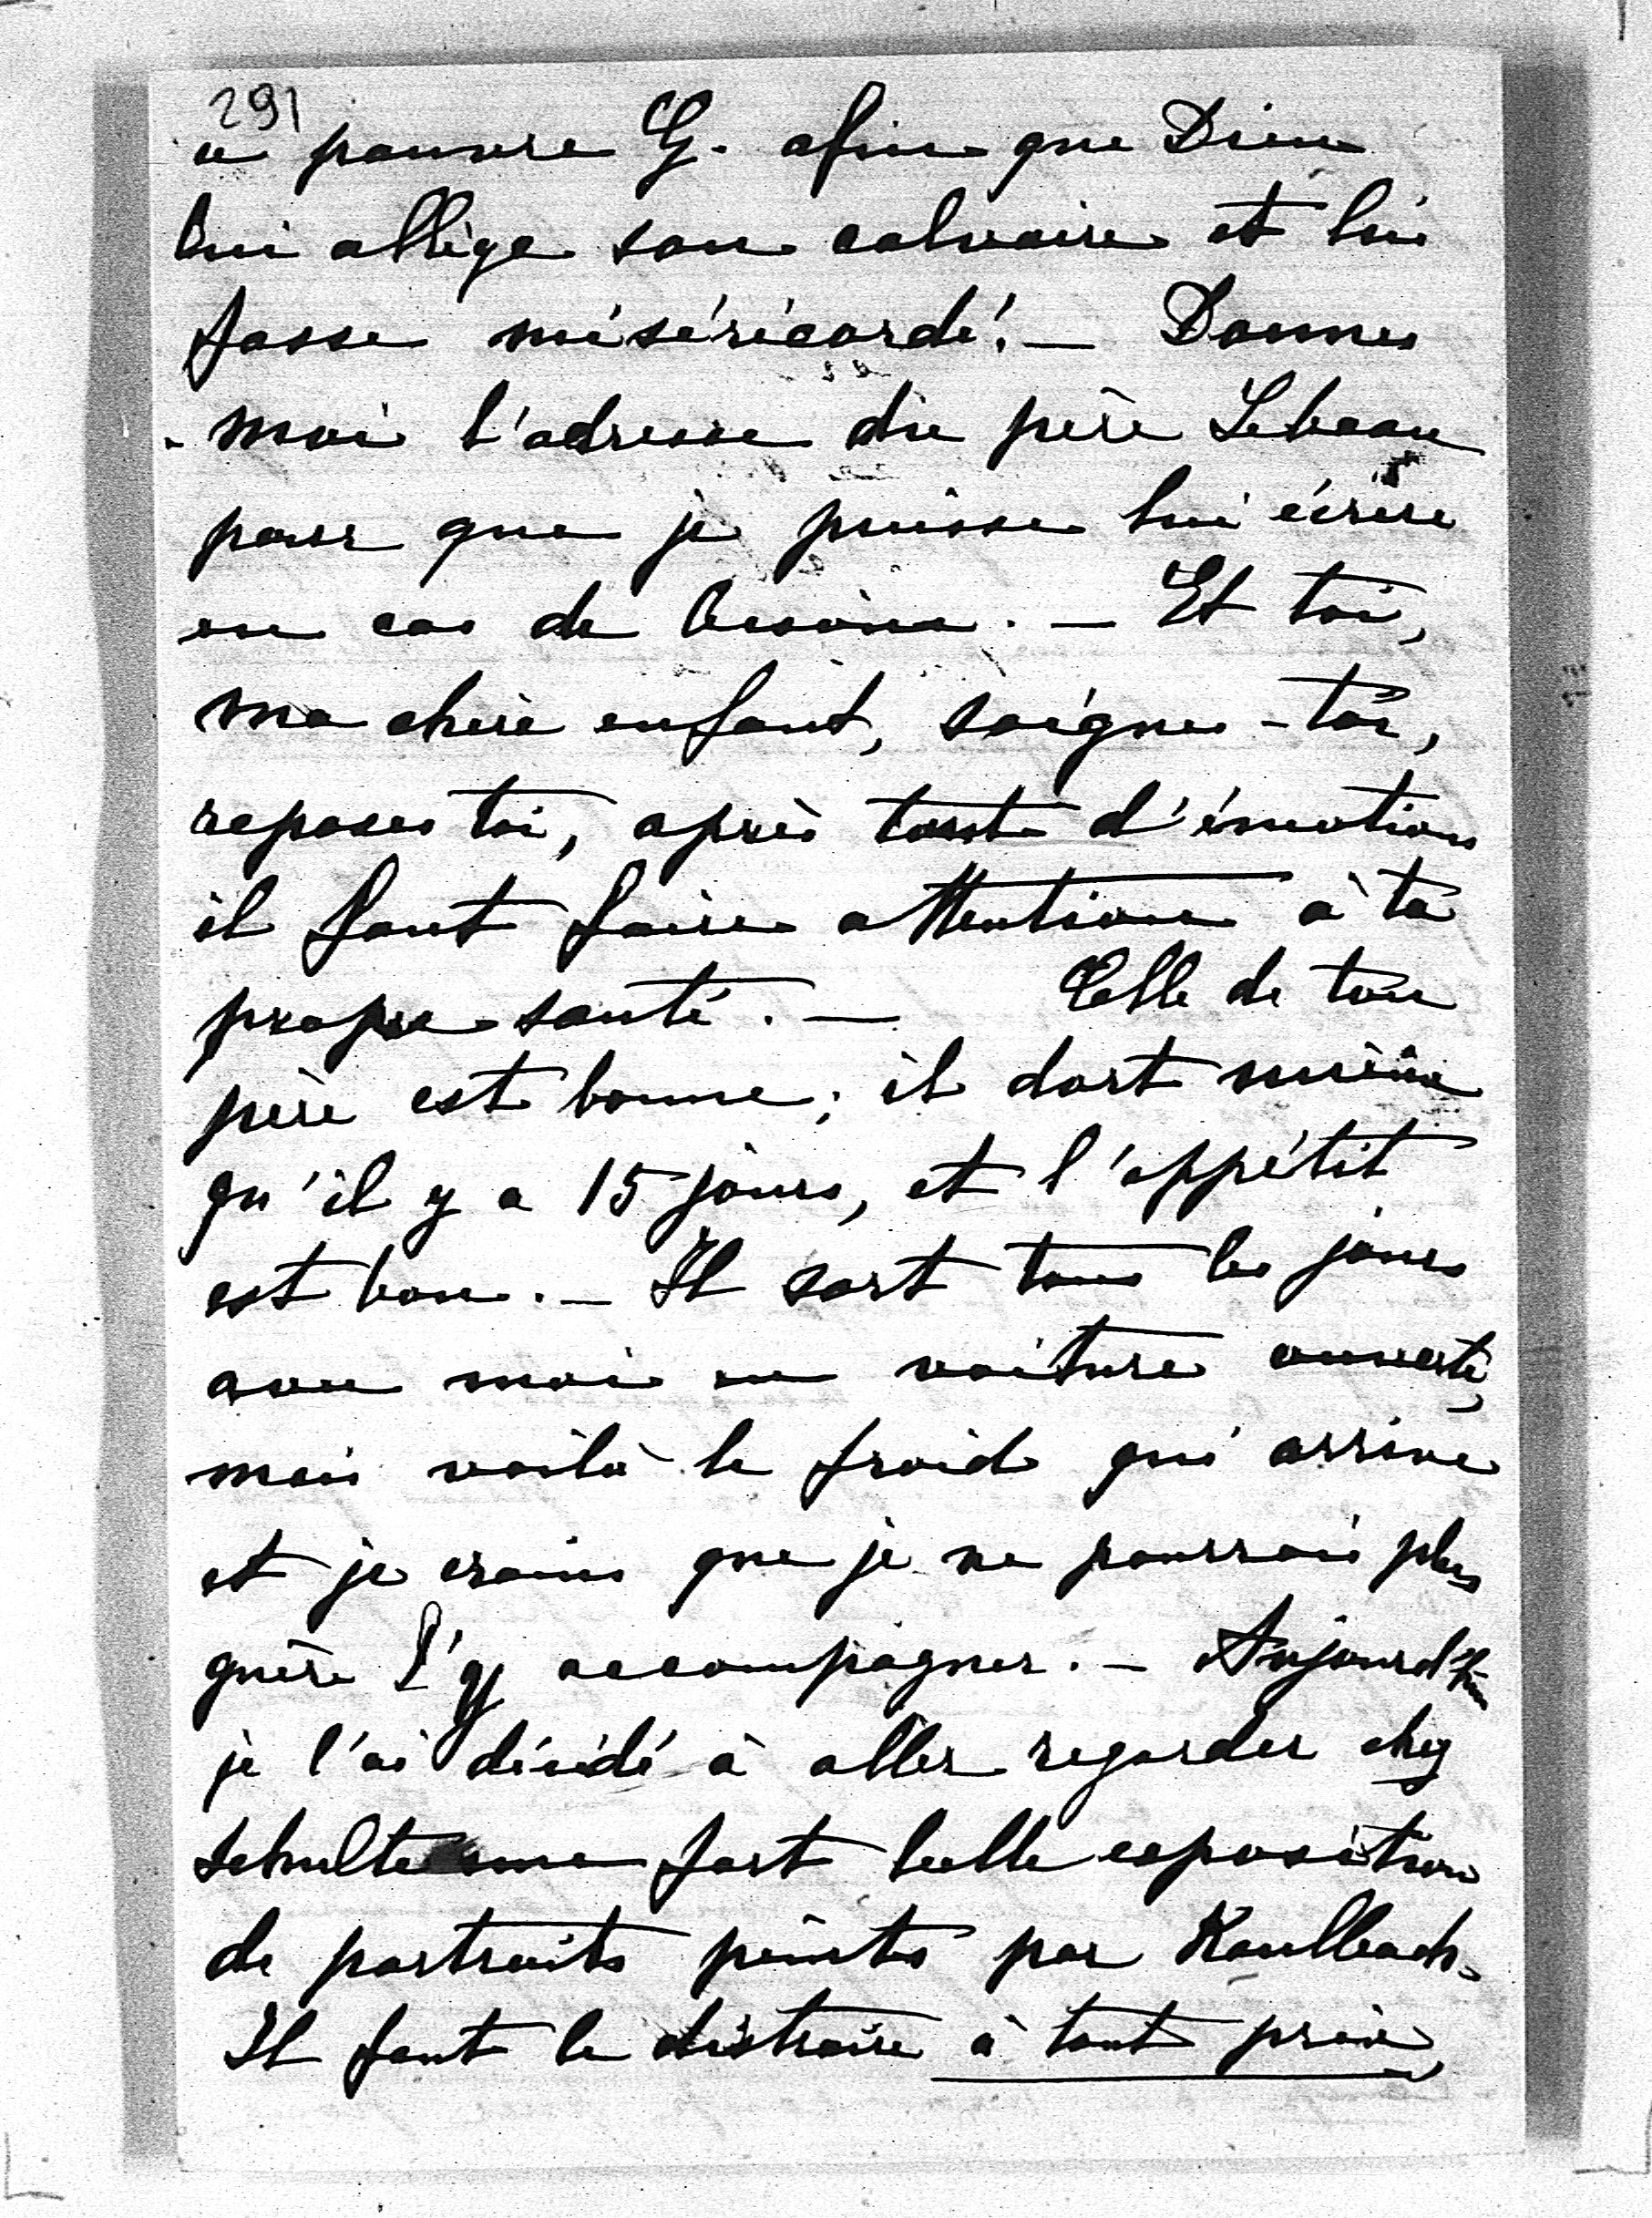 291
ce pauvre G. afin que Dieu
lui allège son calvaire et lui
fasse miséricorde! — Donnes
-moi l'adresse du père Lebeau
pour que je puisse lui écrire
en cas de besoin. — Et toi,
ma chère enfant, soignes-toi,
reposes toi, après tant d'émotions
il faut faire attention à ta
propre santé. — Celle de ton
père est bonne; il dort mieux
qu'il y a 15 jours, et l'appétit
est bon. — Il sort tous les jours
avec moi en voiture ouverte,
mais voilà le froid qui arrive
et je crains que je ne pourrais plus
guère l'y accompagner. — Aujourd'hui
je l'ai décidé à aller regarder chez
Schulte une fort belle exposition
de portraits peints par Kaulbach.
Il faut le distraire à tout prix,